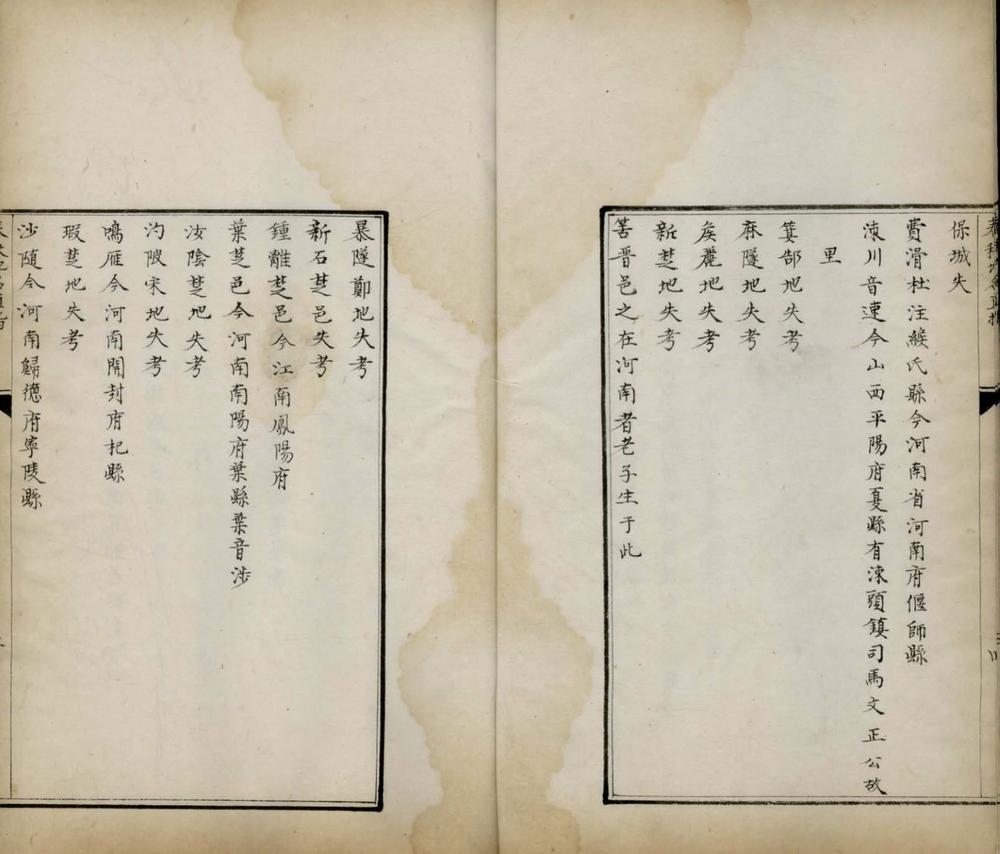 保城失
費滑杜注緱氏縣今河南省河南府偃師縣
涑川音速今山西平陽府夏縣有涑頭鎮司馬文正公故
里
箕郜地失考
麻隧地失考
矦麗地失考
新楚地失考
苦晋邑之在河南者老子生于此
暴隧鄭地失考
新石楚邑失考
鍾離楚邑今江南鳳陽府
葉楚邑今河南南陽府葉縣葉音涉
汝陰楚地失考
汋陂宋地失考
鳴雁今河南開封府杞縣
瑕楚地失考
沙随今河南歸德府寧陵縣